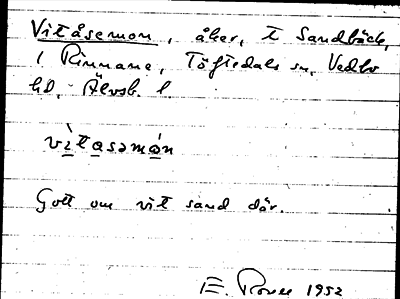 Vitåsemon, åker, t Sandbäck,
i Rinnane, Töftedals sn, Vedbo
hd, Älvsb. l.
vìtasəmòn
Gott om vit sand där.
E. Rosell 1952